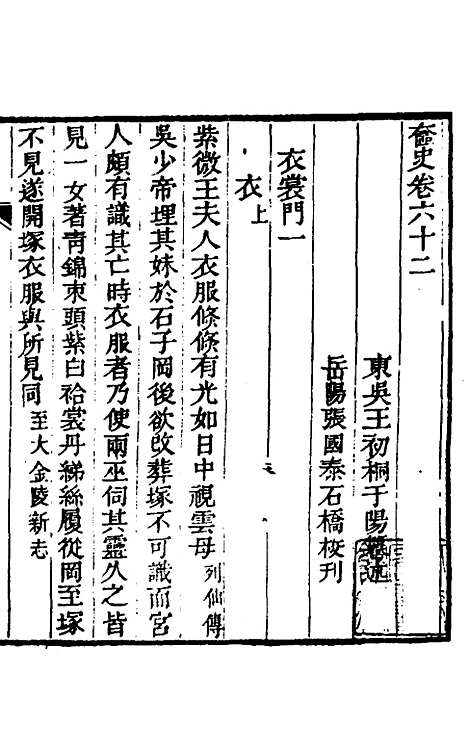 奩史卷六十二
東吳王初桐于陽
岳陽張國泰石橋校刊
衣裳門一
衣上
紫微王夫人衣服條條有光如日中視雲母列仙傳
吳少帝埋其妹於石子岡後欲改葬塚不可識而宮
人頗有識其亡時衣服者乃使兩巫伺其靈久之皆
見一女著青錦束頭紫白袷裳丹綈絲履從岡至塚
不見遂開塚衣服與所見同至大金陵新志